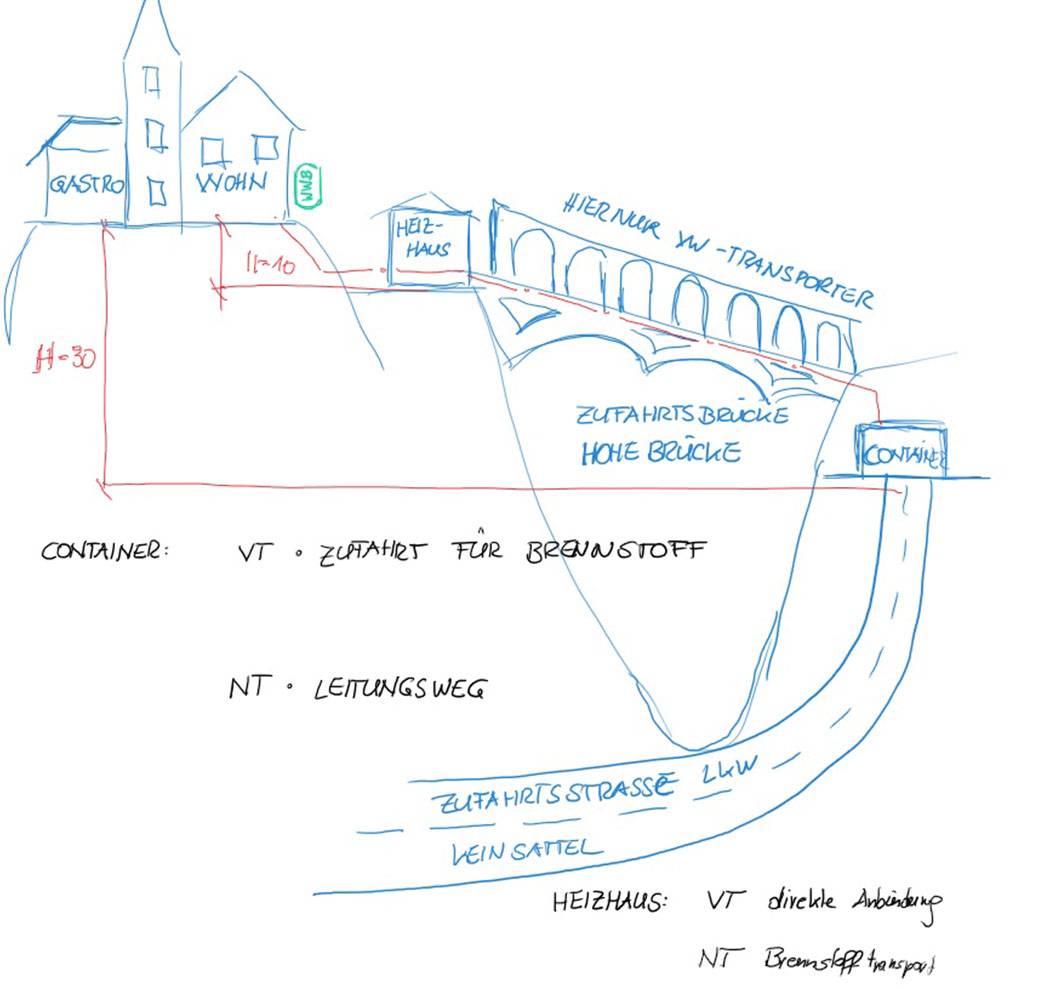 GASTRO
WOHN
WWB
HEIZ-
HAUS
HIER NUR KW-TRANSPORTER
H=10
H=30
ZUFAHRTSBRÜCKE
HOHE BRÜCKE
CONTAINER
CONTAINER: VT • ZUFAHRT FÜR BRENNSTOFF
NT • LEITUNGSWEG
ZUFAHRTSSTRASSE LKW
LEINSATTEL
HEIZHAUS: VT direkte Anbindung
NT Brennstofftransport